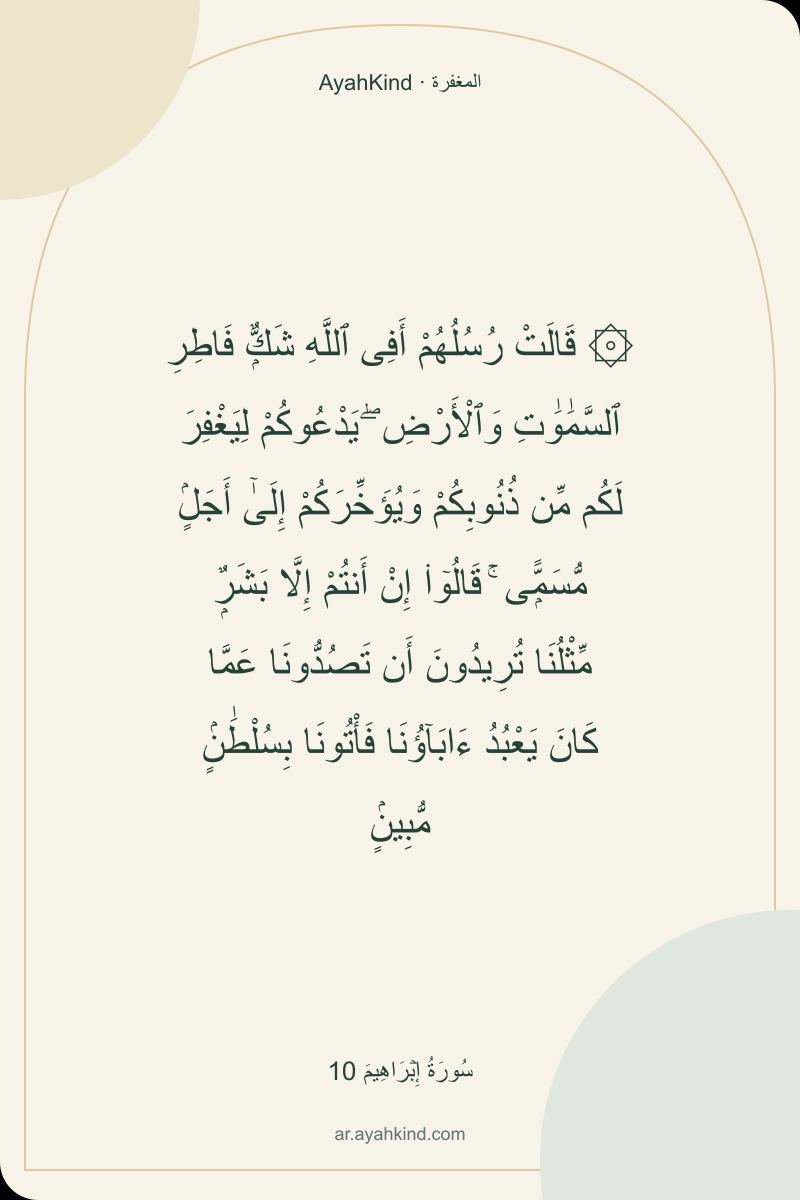 AyahKind · المغفرة
۞ قَالَتْ رُسُلُهُمْ أَفِى ٱللَّهِ شَكٌّۭ فَاطِرِ
ٱلسَّمَـٰوَٰتِ وَٱلْأَرْضِ ۖ يَدْعُوكُمْ لِيَغْفِرَ
لَكُم مِّن ذُنُوبِكُمْ وَيُؤَخِّرَكُمْ إِلَىٰٓ أَجَلٍۢ
مُّسَمًّۭى ۚ قَالُوٓا۟ إِنْ أَنتُمْ إِلَّا بَشَرٌۭ
مِّثْلُنَا تُرِيدُونَ أَن تَصُدُّونَا عَمَّا
كَانَ يَعْبُدُ ءَابَآؤُنَا فَأْتُونَا بِسُلْطَـٰنٍۢ
مُّبِينٍۢ
سُورَةُ إِبۡرَاهِيمَ 10
ar.ayahkind.com